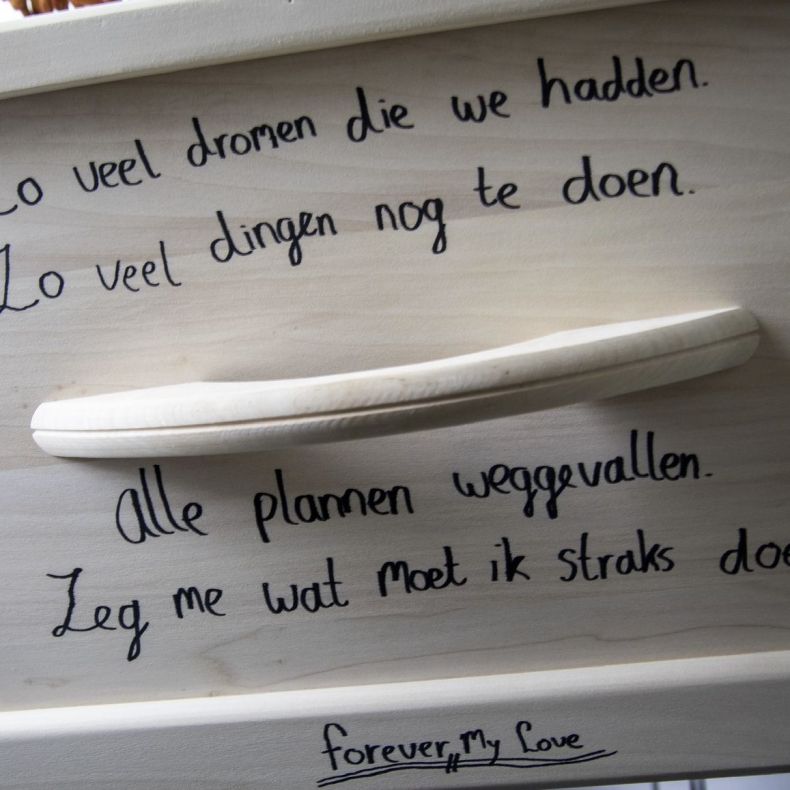 Zo veel dromen die we hadden.
Zo veel dingen nog te doen.
alle plannen weggevallen.
Zeg me wat moet ik straks doe
forever,, My Love